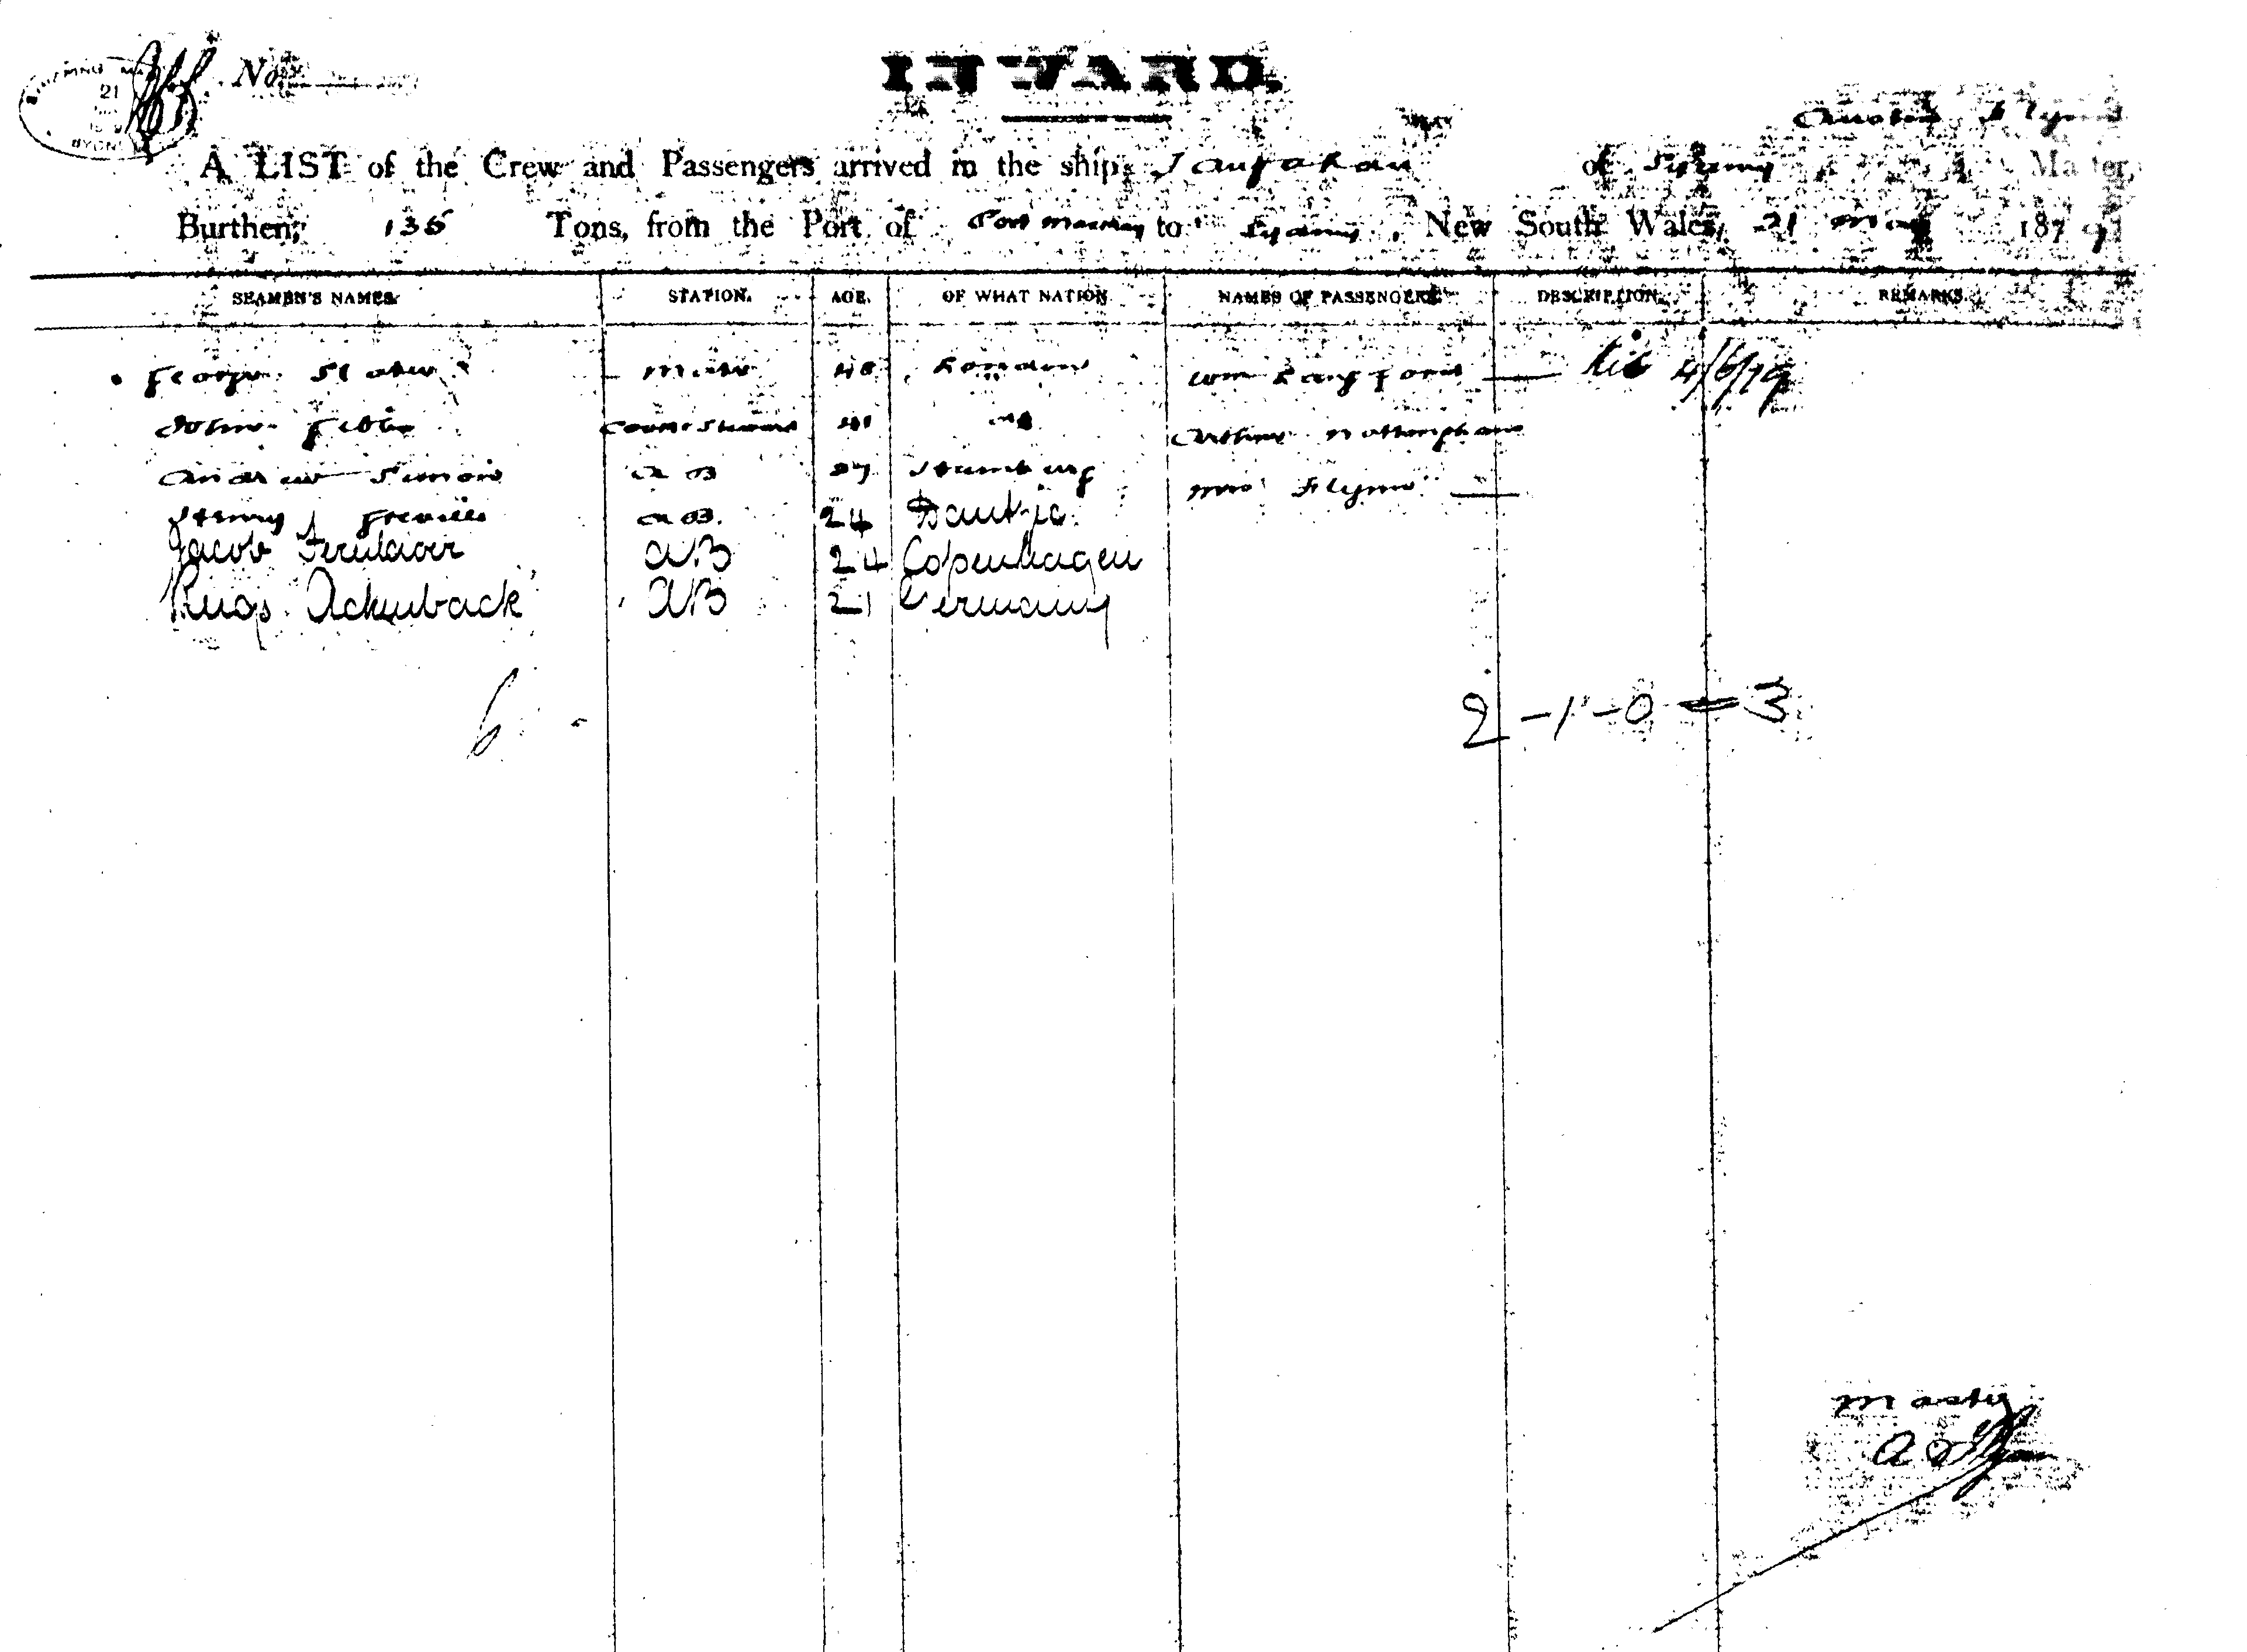 SHIPPING MA
21
SYDNEY
No.
INWARD.
Austin Flynn
A LIST of the Crew and Passengers arrived in the ship of Sydney Master,
Burthen, 135 Tons, from the Port of Port Mackay to Sydney, New South Wales, 21 May 1879
SEAMEN'S NAMES. STATION. AGE. OF WHAT NATION. NAMES OF PASSENGERS. DESCRIPTION. REMARKS.
George Slater Mate 40 London Wm Langford — 4/6/79
John Cook & Steward 41 Arthur
Andrew Simon AB 27 Hamburg Mrs Flynn —
Henry Greville AB. 24 Dantzic
Jacob AB 24 Copenhagen
AB 21 Germany
6
2 - 1 - 0 = 3
Master
A Flynn